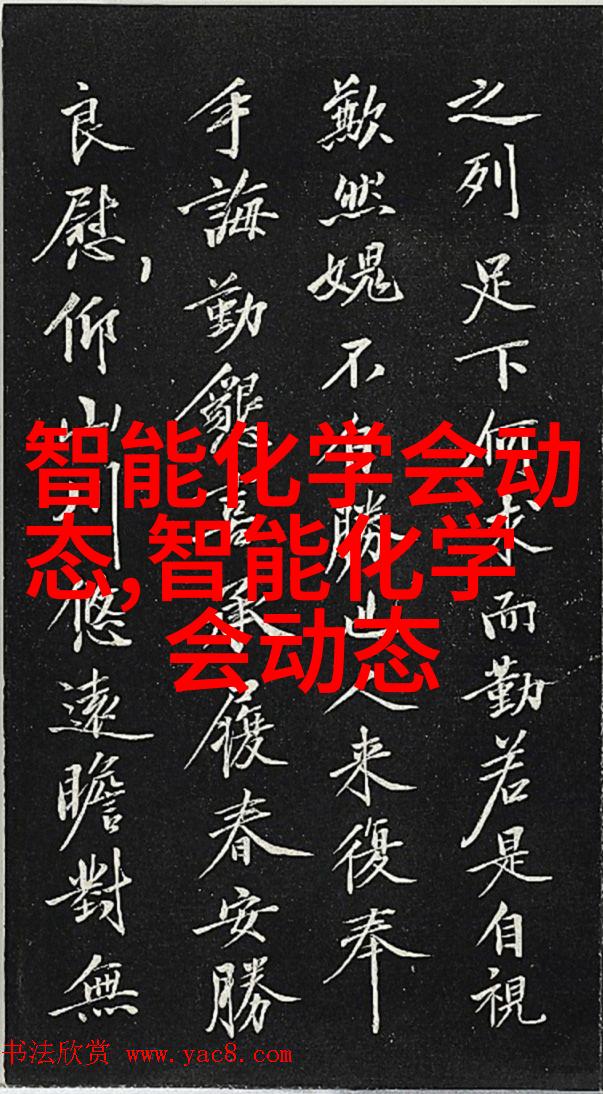 之列足下何求而勤若是自視
歉然媿不自勝也人来復奉
手誨勤懇喜承履春安勝
良慰,仰山川悠遠瞻對無
智能化学会动
态,智能化学
会动态
书法欣赏 www.yac8.com